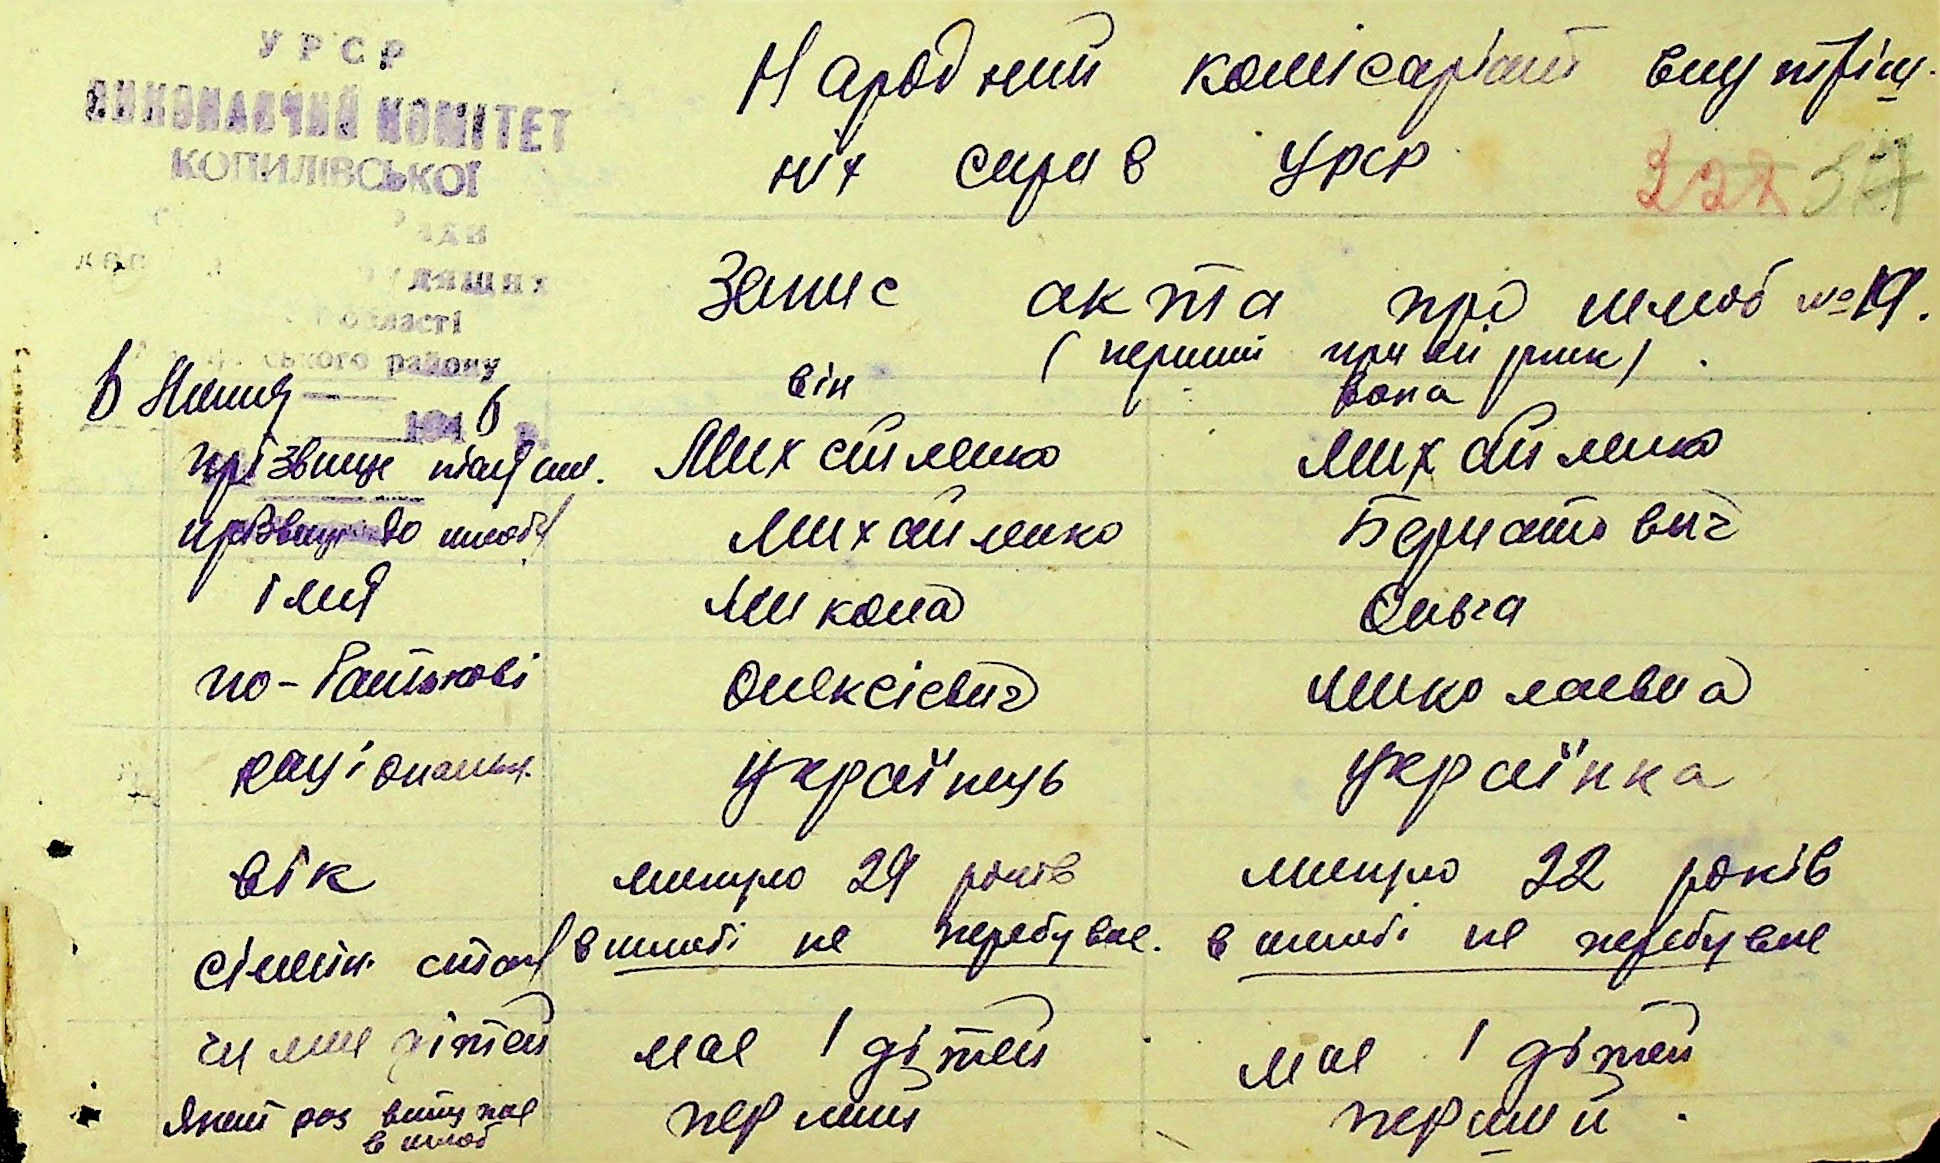 УРСР
ВИКОНАВЧИЙ КОМІТЕТ
КОПИЛІВСЬКОЇ
Ради
області
ського району
6 Июня 1946 р.
Народний комісаріат внутріш-
ніх справ УРСР
Запис акта про шлюб № 19.
(перший примірник)
він вона
прізвище після шл. Михайленко Михайленко
прізвище до шлюбу Михайленко Бернатович
імя Микола Ольга
по-батькові Олексієвич Миколаевна
національн. Українець Українка
вік минуло 29 років минуло 22 років
сімейн. стан в шлюбі не перебуває. в шлюбі не перебуває
чи має дітей має 1 дітей має 1 дітей
Який раз вступає в шлюб перший перший.